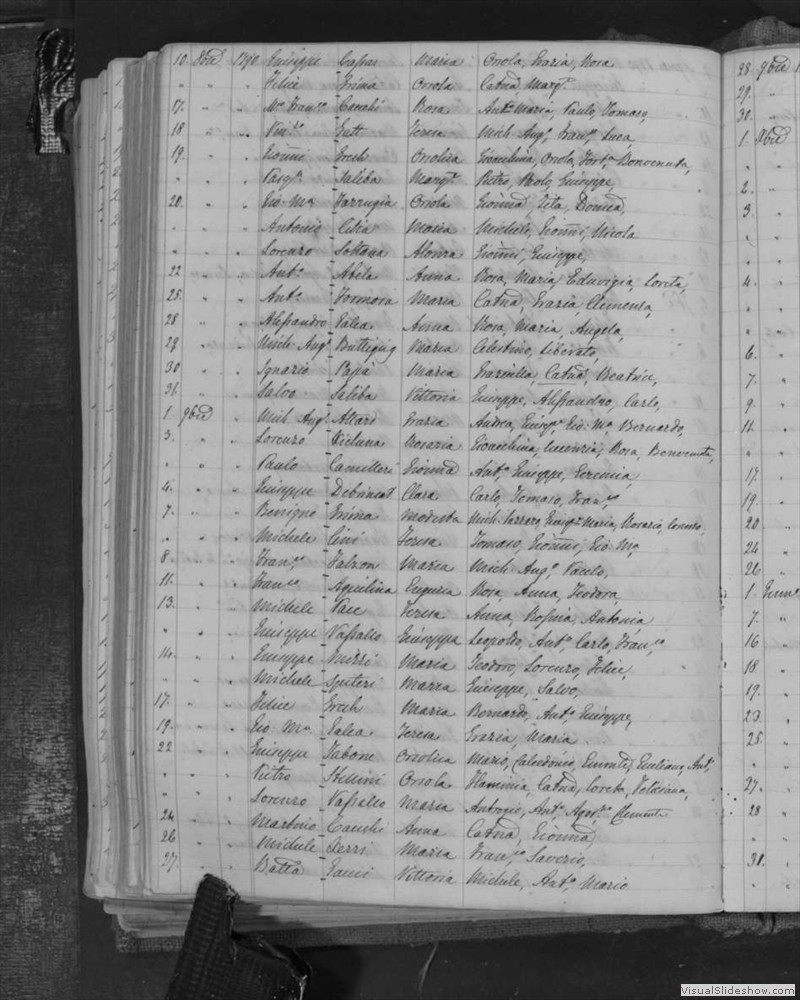 10. 8bre 1790 Giuseppe Caspar Maria Orsola, Grazia, Rosa
" " " Felice Grima Orsola Catna, Margta
17. " " Mo Franco Cauchi Rosa Anto Maria, Paulo, Tomaso,
18 " " Vinzo Gatt Teresa Mich. Ango, Franco, Luca,
19. " " Gionni Grech Orsolica Gioacchina, Orsola, Benvenuta,
" " " Pasqle Saliba Margta Pietro, Paolo, Giuseppe,
20. " " Gio Ma Farrugia Orsola Gionna, Zita, Domca,
" " " Antonio Celia Maria Michele, Gionni, Nicola
" " " Lorenzo Alonza Gionni, Giuseppe,
22 " " Anto Abela Anna Rosa, Maria, Eduvigia, Loreta,
25. " " Anto Formosa Maria Catna, Grazia, Clemenza,
28 " " Alessandro Galea Anna Rosa, Maria, Angela,
29. " " Mich. Ango Buttigieg Maria Celestino, Liberato,
30 " " Ignazio Maria Graziulla, Catna, Beatrice,
31. " " Salvo Saliba Vittoria Giuseppe, Alessandro, Carlo,
1. 9bre " Mich. Ango Attard Grazia Andrea, Giuspe, Gio. Ma Bernardo,
3. " " Lorenzo Xicluna Rosaria Gioacchina, Rosa, Benvenuta,
" " " Paulo Camilleri Gionna Anto, Giuseppe, Geremia
4. " " Giuseppe Clara Carlo, Tomaso, Franco
7. " " Benigno Grima Modesta Giuspe Maria, Rosario, Lorenzo,
" " " Michele Cini Teresa Tomaso, Gionni, Gio Ma
8. " " Franco Falzon Maria Mich. Ango, Paulo,
11. " " Franco Aquilina Eugenia Rosa, Anna, Teodora,
13. " " Michele Pace Teresa Anna, Rosina, Antonia
" " " Giuseppe Vassallo Giuseppa Leopoldo, Anto, Carlo, Franco
14. " " Giuseppe Mizzi Maria Teodoro, Lorenzo, Felice,
" " " Michele Spiteri Maria Giuseppe, Salvo,
17. " " Felice Grech Maria Bernardo, Anto, Giuseppe,
19. " " Gio Ma Galea Teresa Grazia, Maria
22 " " Giuseppe Tabone Orsolica Mario, Calcedonio, Giuliano, Anto,
" " " Pietro Stellini Orsola Flaminia, Catna, Loreta, Feliciana,
" " " Lorenzo Vassallo Maria Antonio, Clemente
24. " " Martino Cauchi Anna Catna, Gionna,
26. " " Michele Zerri Maria Franco, Saverio,
27. " " Batta Vittoria Michele, Anto, Mario
28 9bre 1
29. "
30. "
1. Xbre
" "
2. "
3. "
4. "
6. "
7. "
9. "
11. "
17. "
19. "
20 "
24 "
26 "
1 Genn
7. "
16 "
18 "
19. "
23. "
25. "
27. "
28 "
31. "
VisualSlideshow.com